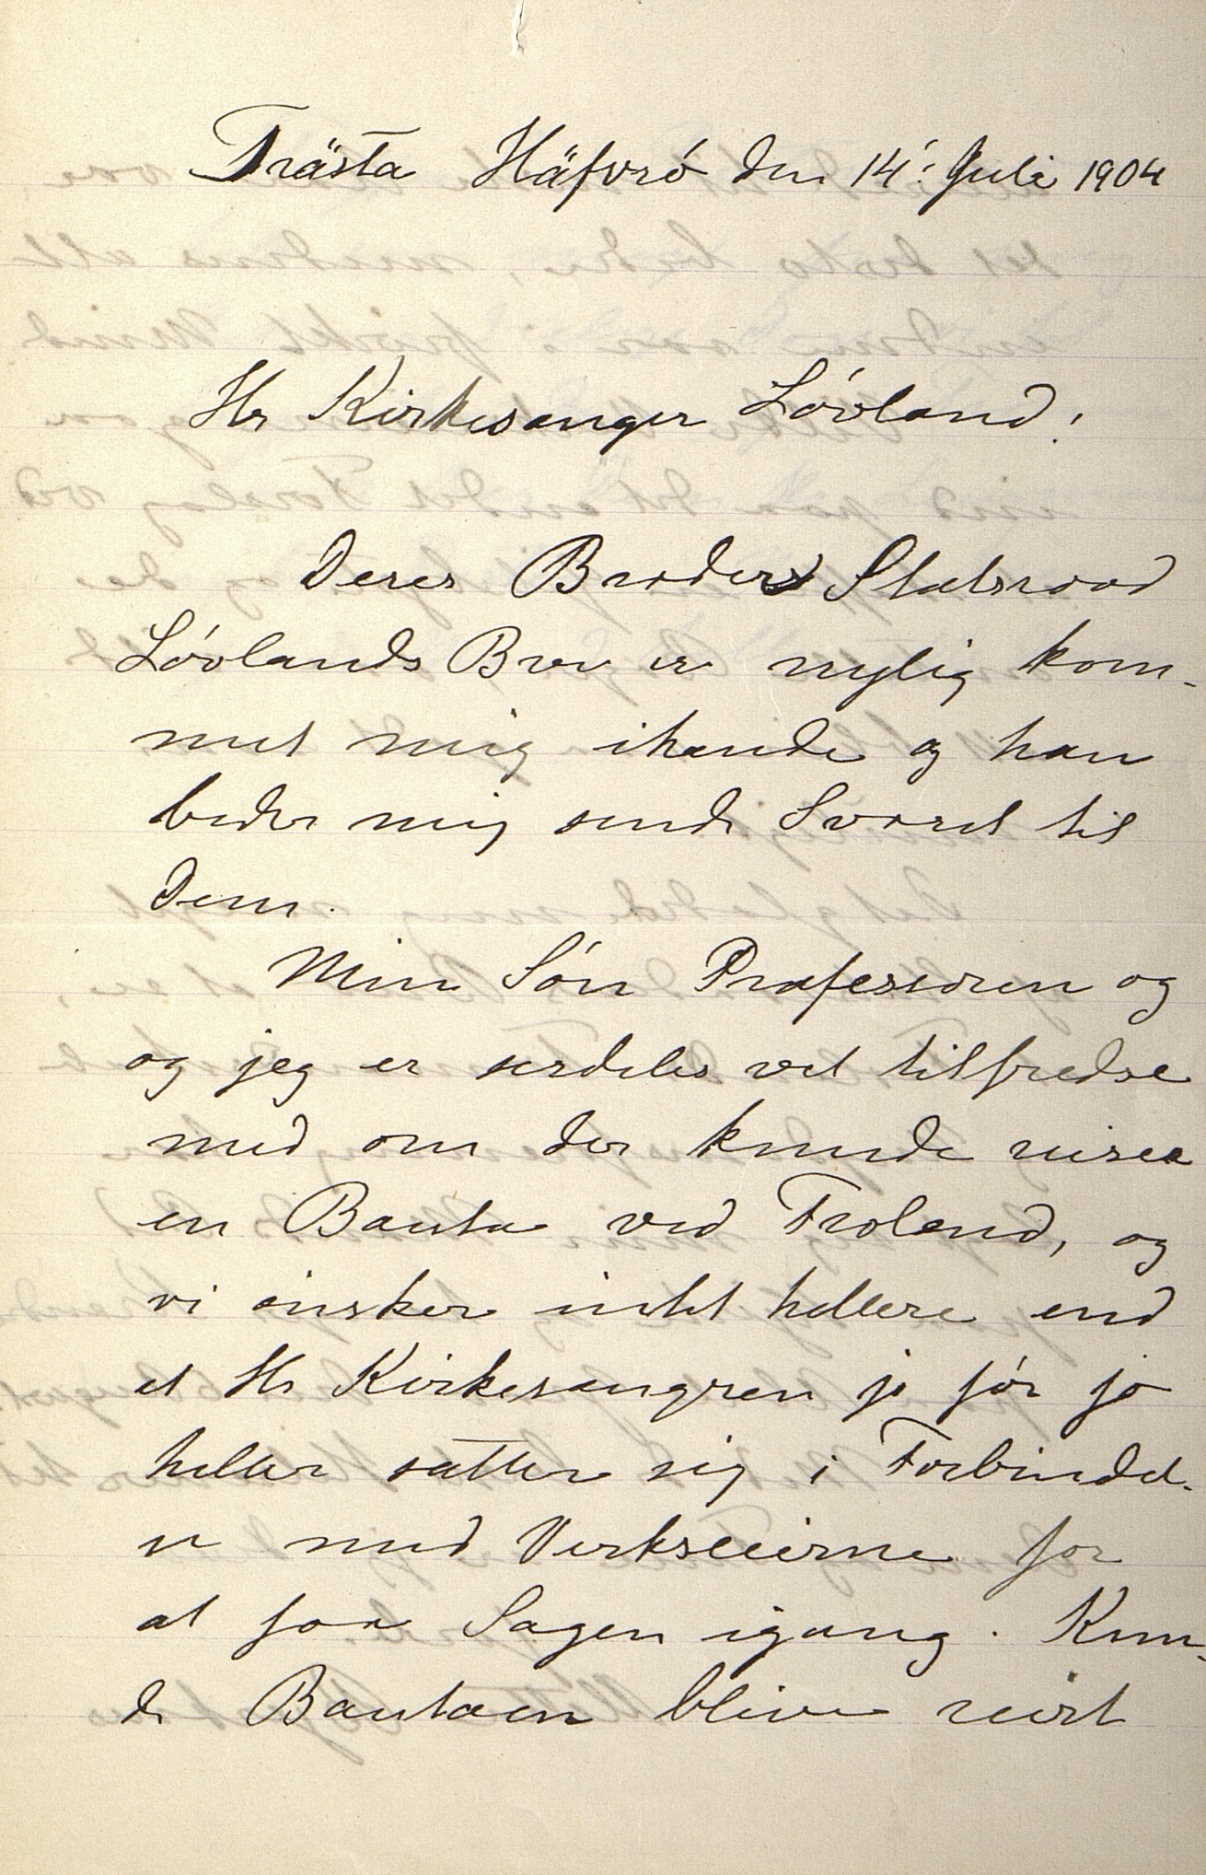 Trästa Häfverö den 14: Juli 1904
Hr Kirkesanger Lövland!
Deres Broders Statsraad
Lövlands Brev er nylig kom-
met mig ihænde og han
beder mig sende Svaret til
Dem.
Min Sön Professoren og
og jeg er serdeles vel tilfredse
med om der kunde reises
en Bauta ved Froland, og
vi önsker intet hellere end
at Hr Kirkesangren jo för jo
heller sätter sig i Forbindel-
se med Verkseierne for
at faa Sagen igang. Kun-
de Bautaen blive reist